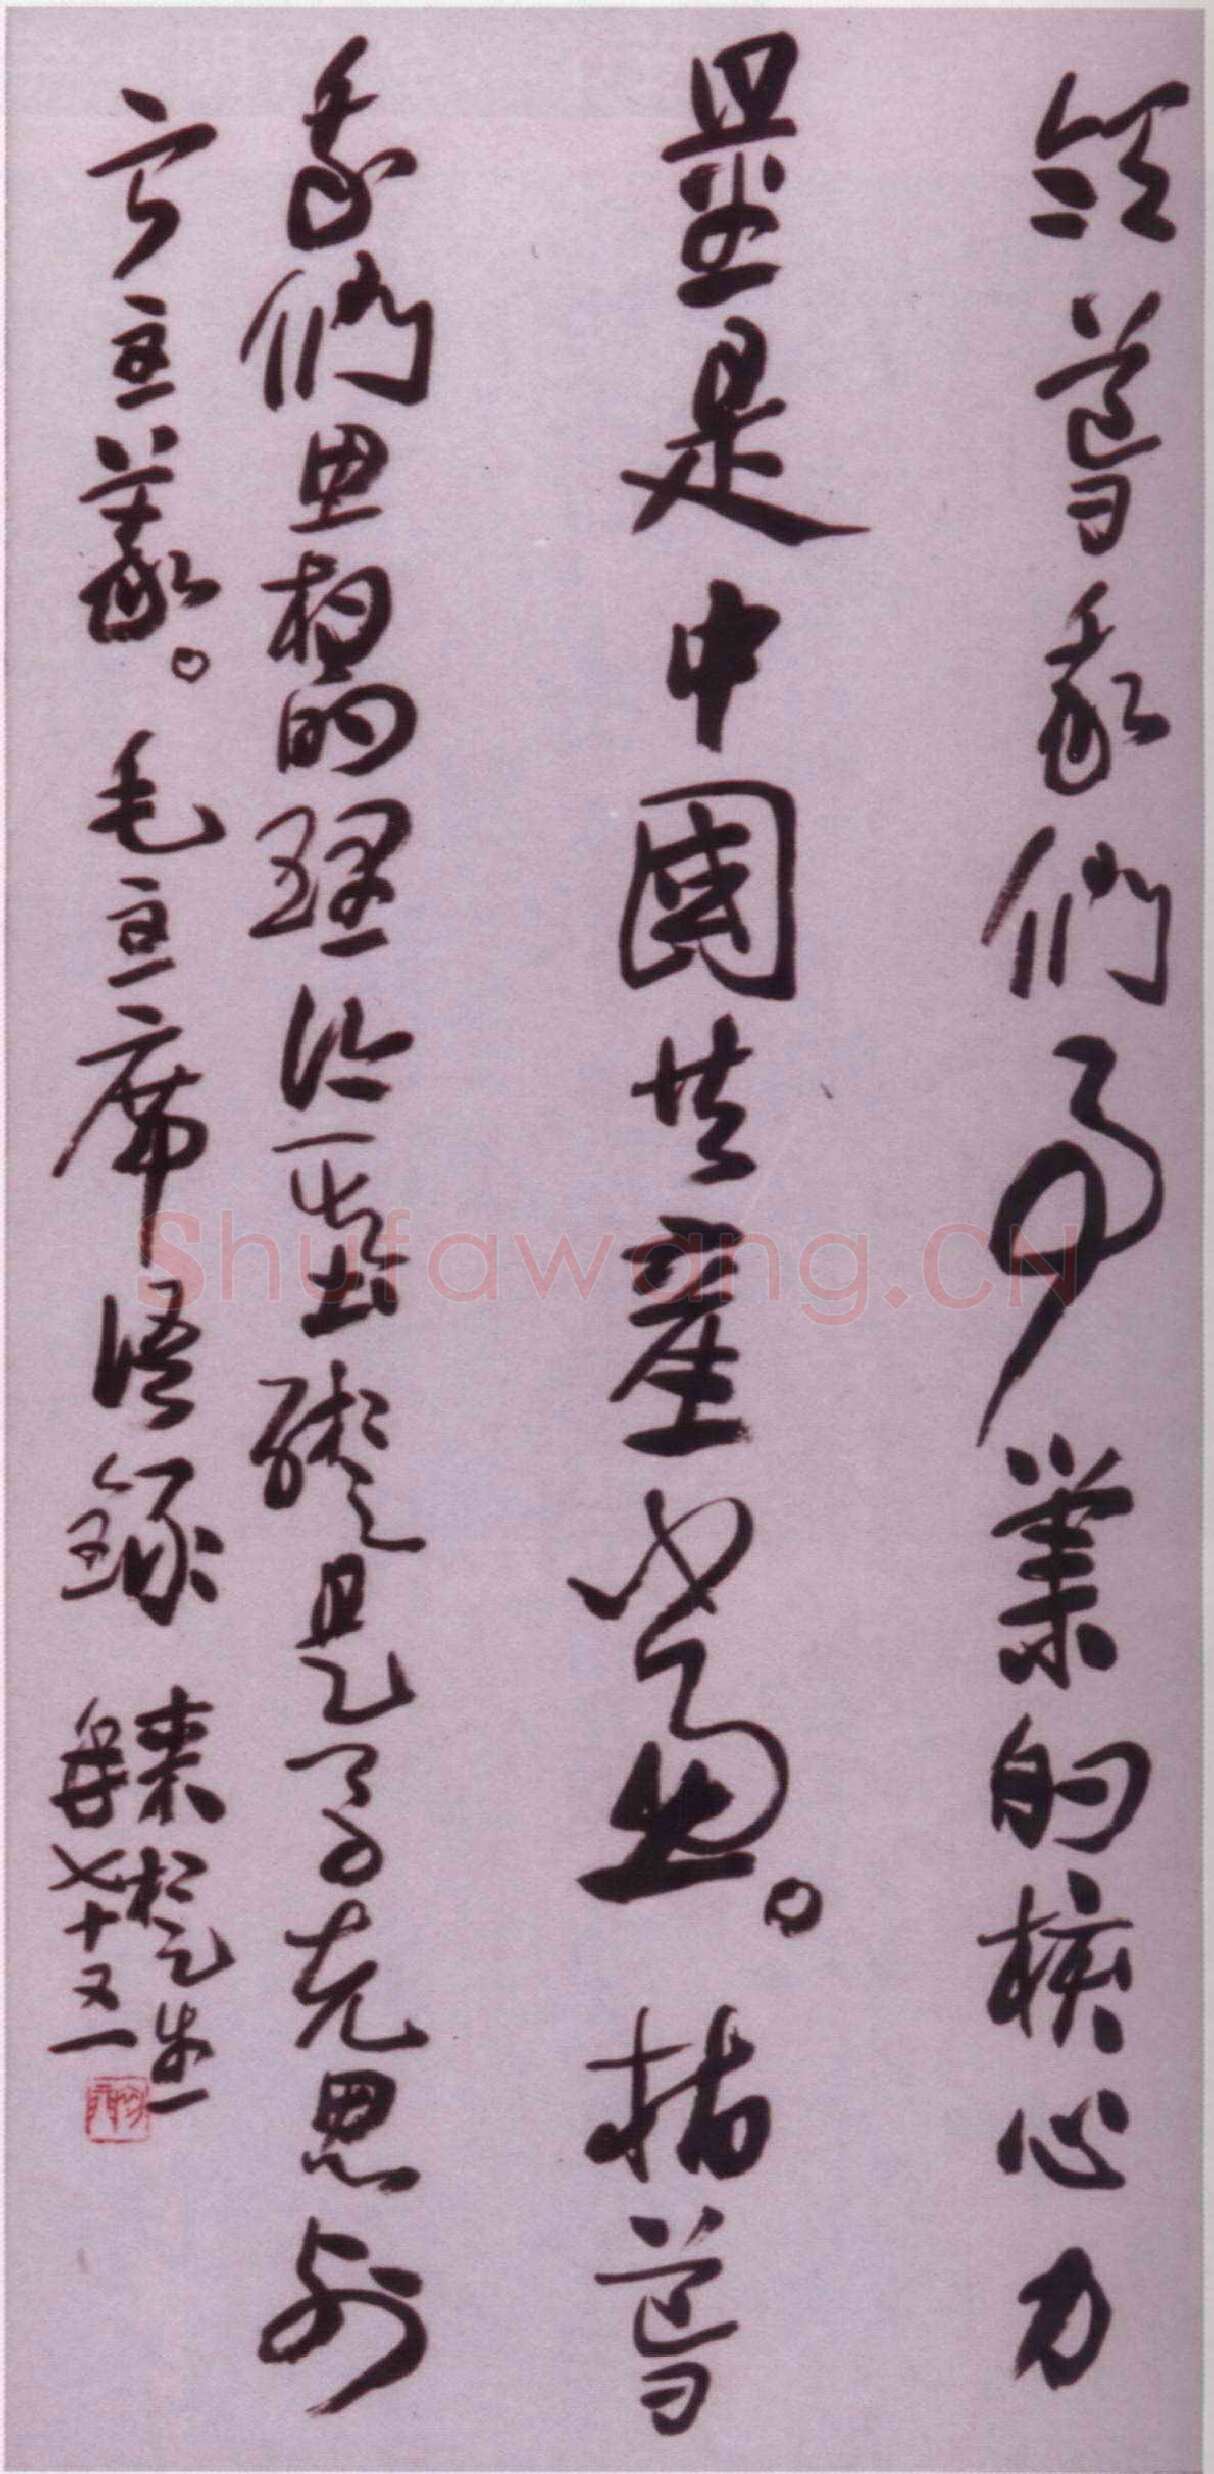 領導我們事業的核心力
量是中國共產黨。指導
我們思想的理論基礎是馬克思列
寧主義。毛主席語錄
來楚生
年七十又一
Shufawang.CN